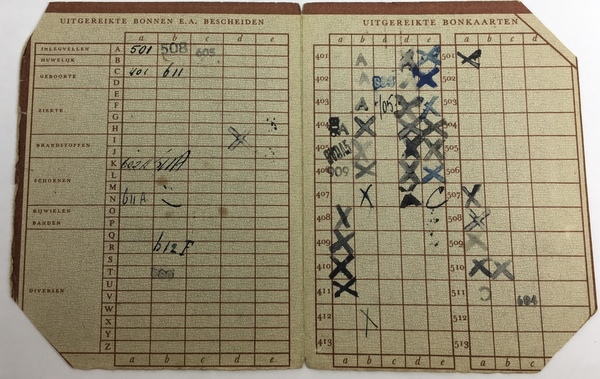 UITGEREIKTE BONNEN E.A. BESCHEIDEN
a b c d e
INLEGVELLEN A 501 508 605
HUWELIJK B
GEBOORTE C 401 611
D
E
ZIEKTE F
G
H
I
BRANDSTOFFEN J
K 611A
SCHOENEN L
M
N 611A
RIJWIELEN O
BANDEN P
Q
R 612F
S
T
DIVERSEN U
V
W
X
Y
Z
a b c d e
UITGEREIKTE BONKAARTEN
a b c d e a b c
401 501 X
402 A X X 502
403 A X X 503
404 X X X 504
X X 505
509 X X X 506
407 X C 507 X
408 X 508 X
409 X 509
410 X 510 X X
411 X 511 C 604
412 X 512
413 513
a b c d e a b c